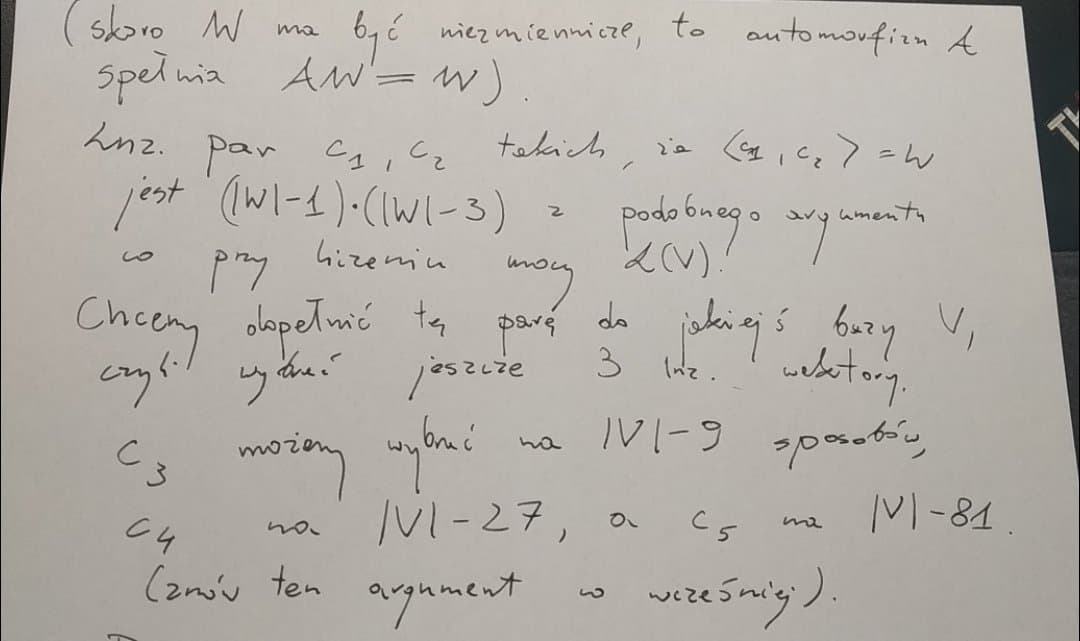 (skoro W ma być niezmiennicze, to automorfizm A
spełnia AW = W).
Lnz. par c₁, c₂ takich, że ⟨c₁, c₂⟩ = W
jest (|W|-1)·(|W|-3) z podobnego argumentu
co przy liczeniu mocy L(V)!
Chcemy dopełnić tę parę do jakiejś bazy V,
czyli wybrać jeszcze 3 lnz. wektory.
c₃ możemy wybrać na |V|-9 sposobów,
c₄ na |V|-27, a c₅ na |V|-81.
(znów ten argument co wcześniej).